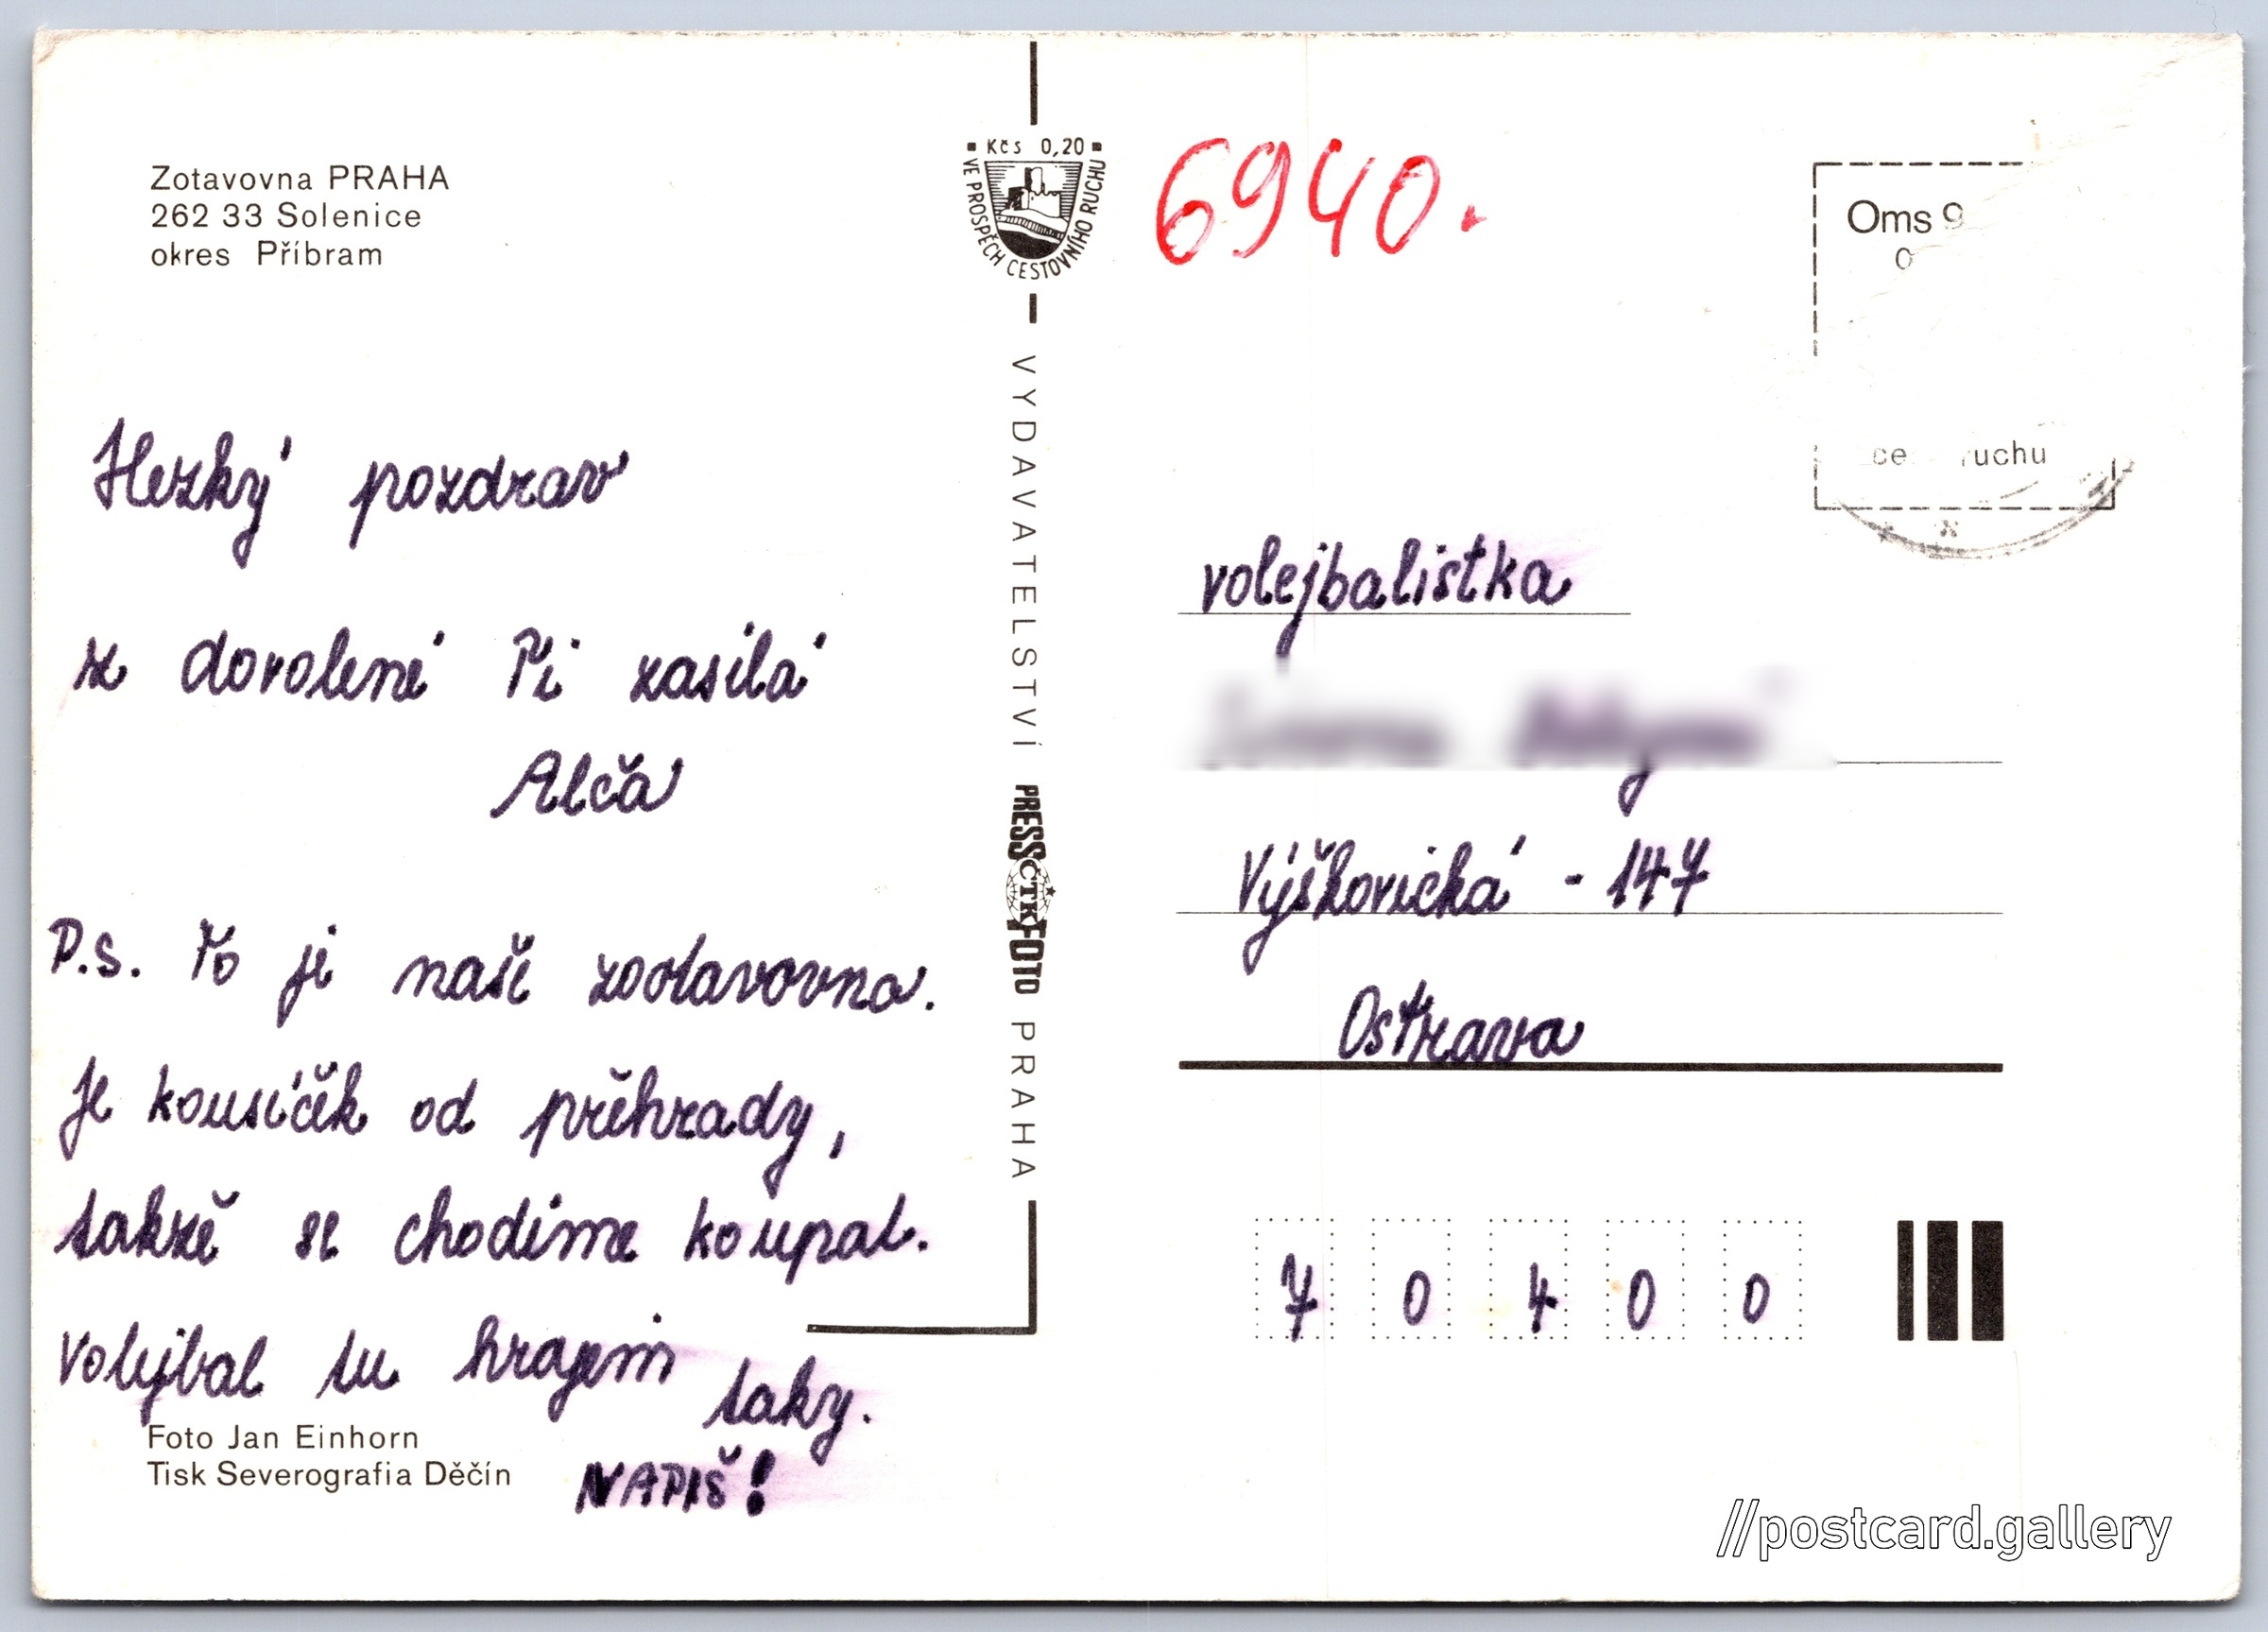 Zotavovna PRAHA
262 33 Solenice
okres Příbram
Hezký pozdrav
z dovolené Ti zasílá
Alča
P.S. To je naše zootavovna.
Je kousíček od přěhrady,
takžě se chodíme koupat.
Volejbal tu hrajem taky.
NAPIŠ!
Foto Jan Einhorn
Tisk Severografia Děčín
Kčs 0,20
VE PROSPĚCH CESTOVNÍHO RUCHU
VYDAVATELSTVÍ PRESSFOTO PRAHA
ČTK
6940.
Oms 9
0
ce ruchu
volejbalistka
Výškovická - 147
Ostrava
7 0 4 0 0
//postcard.gallery